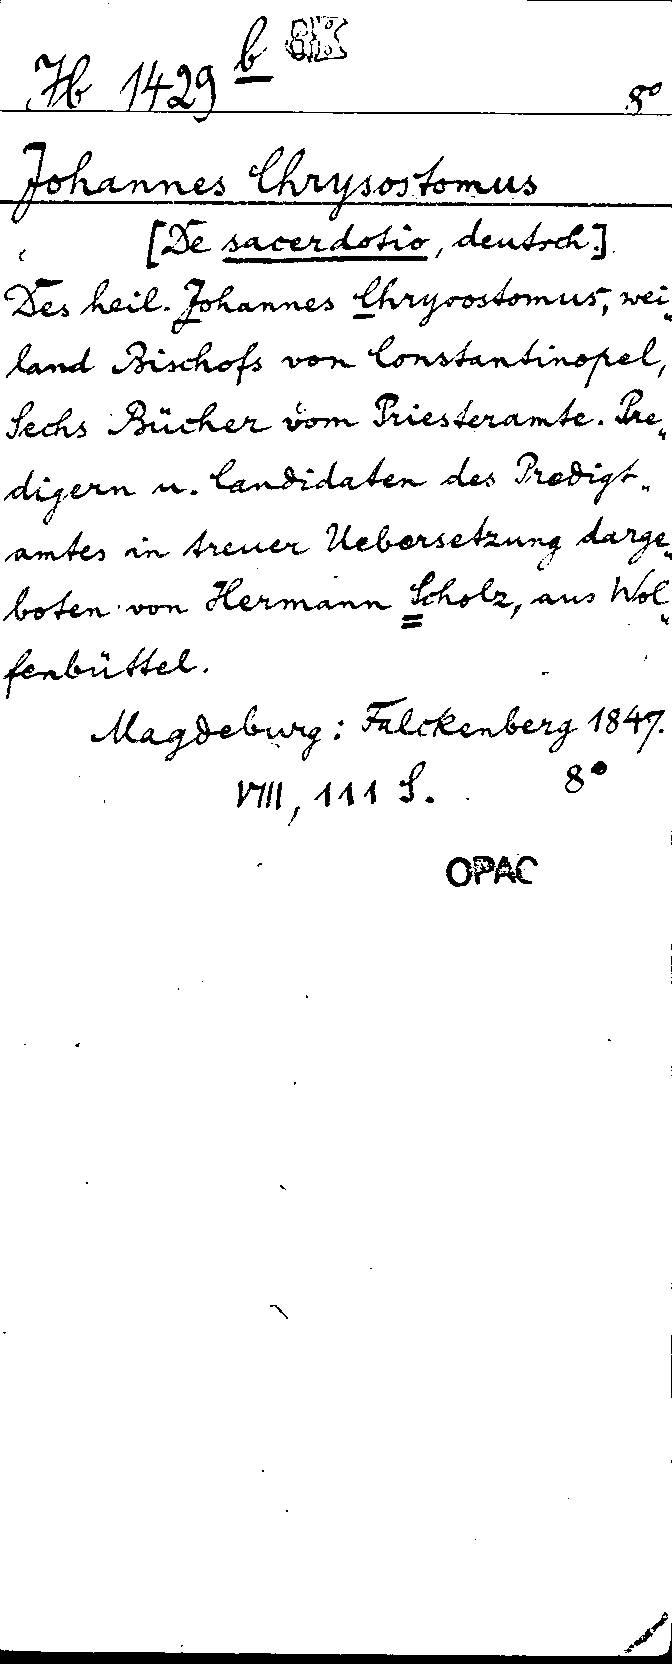 Hb 1429 b
8°
Johannes Chrysostomus
[De sacerdotio, deutsch.]
Des heil. Johannes Chrysostomus, wei„
land Bischofs von Constantinopel,
Sechs Bücher vom Priesteramte. Pre„
digern u. Candidaten des Predigt„
amtes in treuer Uebersetzung darge„
boten von Hermann Scholz, aus Wol„
fenbüttel.
Magdeburg: Falckenberg 1847.
VIII, 111 S. 8°
OPAC